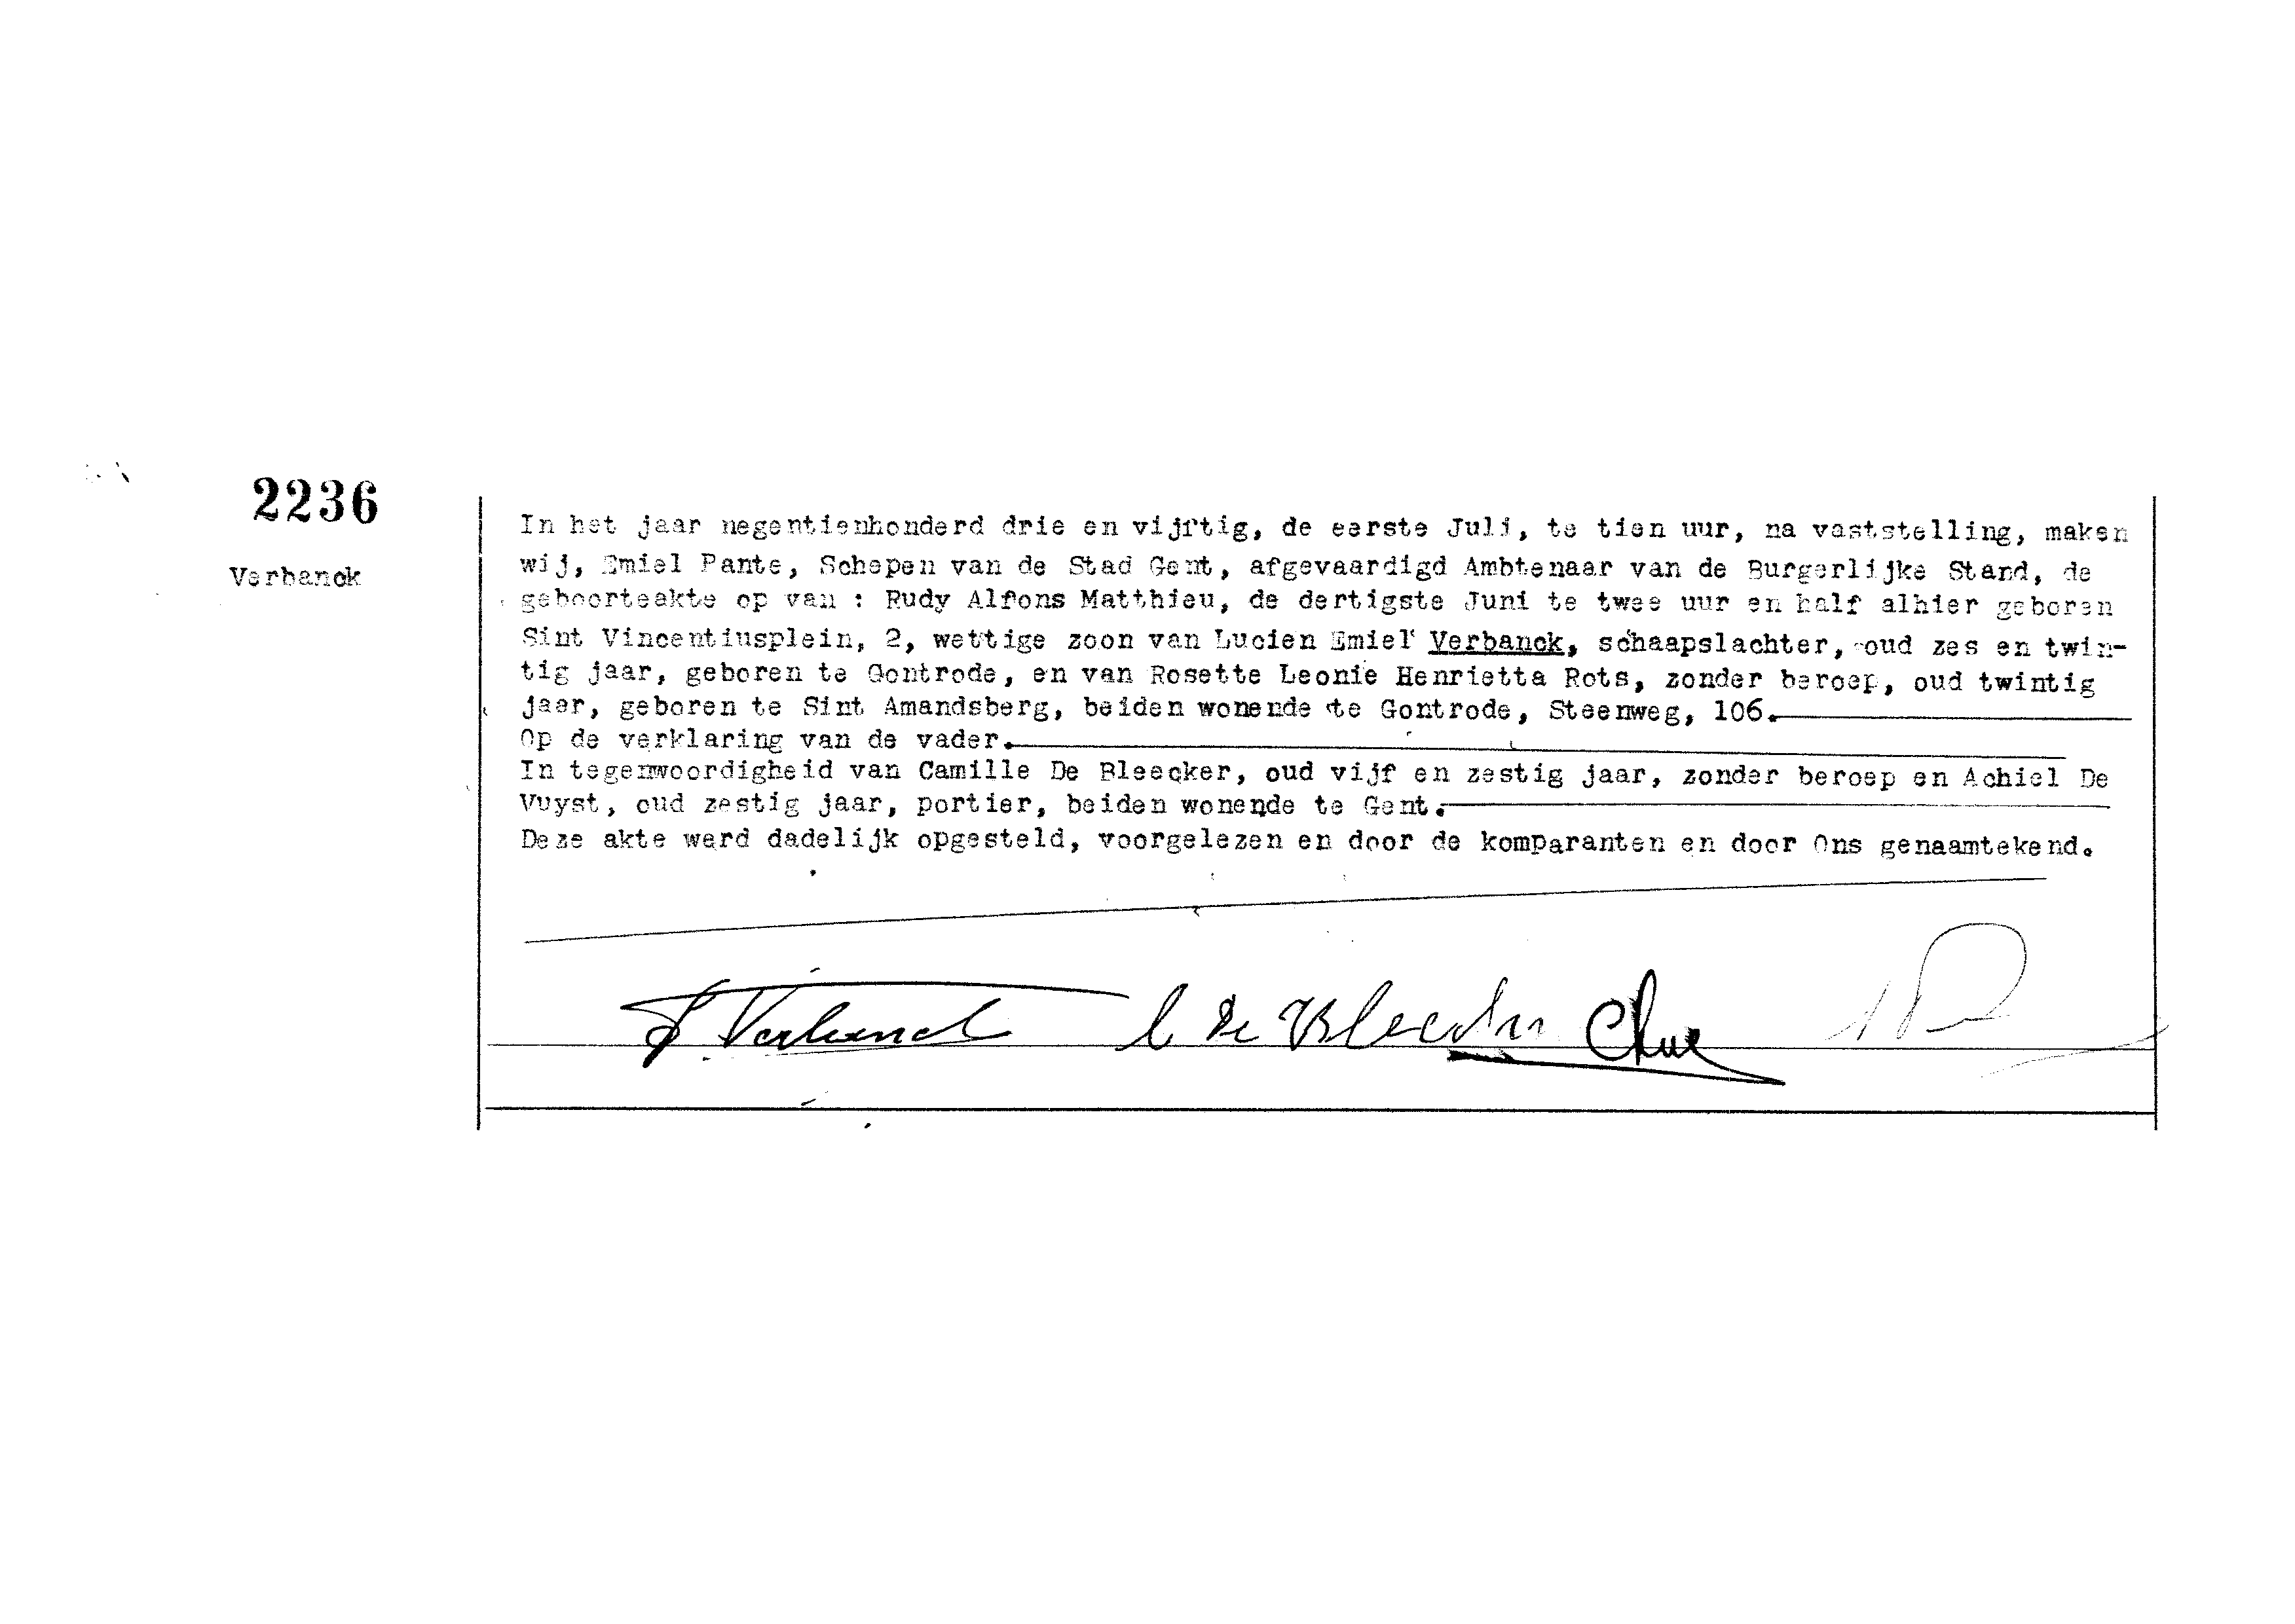 2236
Verbanck
In het jaar negentienhonderd drie en vijftig, de eerste Juli, te tien uur, na vaststelling, maken
wij, Emiel Pante, Schepen van de Stad Gent, afgevaardigd Ambtenaar van de Burgerlijke Stand, de
geboorteakte op van : Rudy Alfons Matthieu, de dertigste Juni te twee uur en half alhier geboren
Sint Vincentiusplein, 2, wettige zoon van Lucien Emiel Verbanck, schaapslachter, oud zes en twin-
tig jaar, geboren te Gontrode, en van Rosette Leonie Henrietta Rots, zonder beroep, oud twintig
jaar, geboren te Sint Amandsberg, beiden wonende te Gontrode, Steenweg, 106.
Op de verklaring van de vader.
In tegenwoordigheid van Camille De Bleecker, oud vijf en zestig jaar, zonder beroep en Achiel De
Vuyst, oud zestig jaar, portier, beiden wonende te Gent.
Deze akte werd dadelijk opgesteld, voorgelezen en door de komparanten en door Ons genaamtekend.
Verbanck